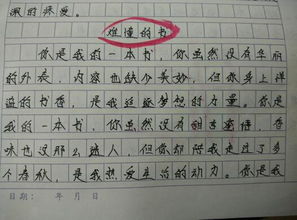 深的疼爱。
难懂的书
你是我的一本书，你虽然没有华丽
的外表，内容也缺个美妙，但你身上洋
溢的书香，是我延续梦想的力量。你是
我的一本书，你虽然没有甜言蜜语，香
味也没那么迷人，但你却陪我走过了多
个春秋，是我热爱生活的动力。你是我
日期： 年 月 日